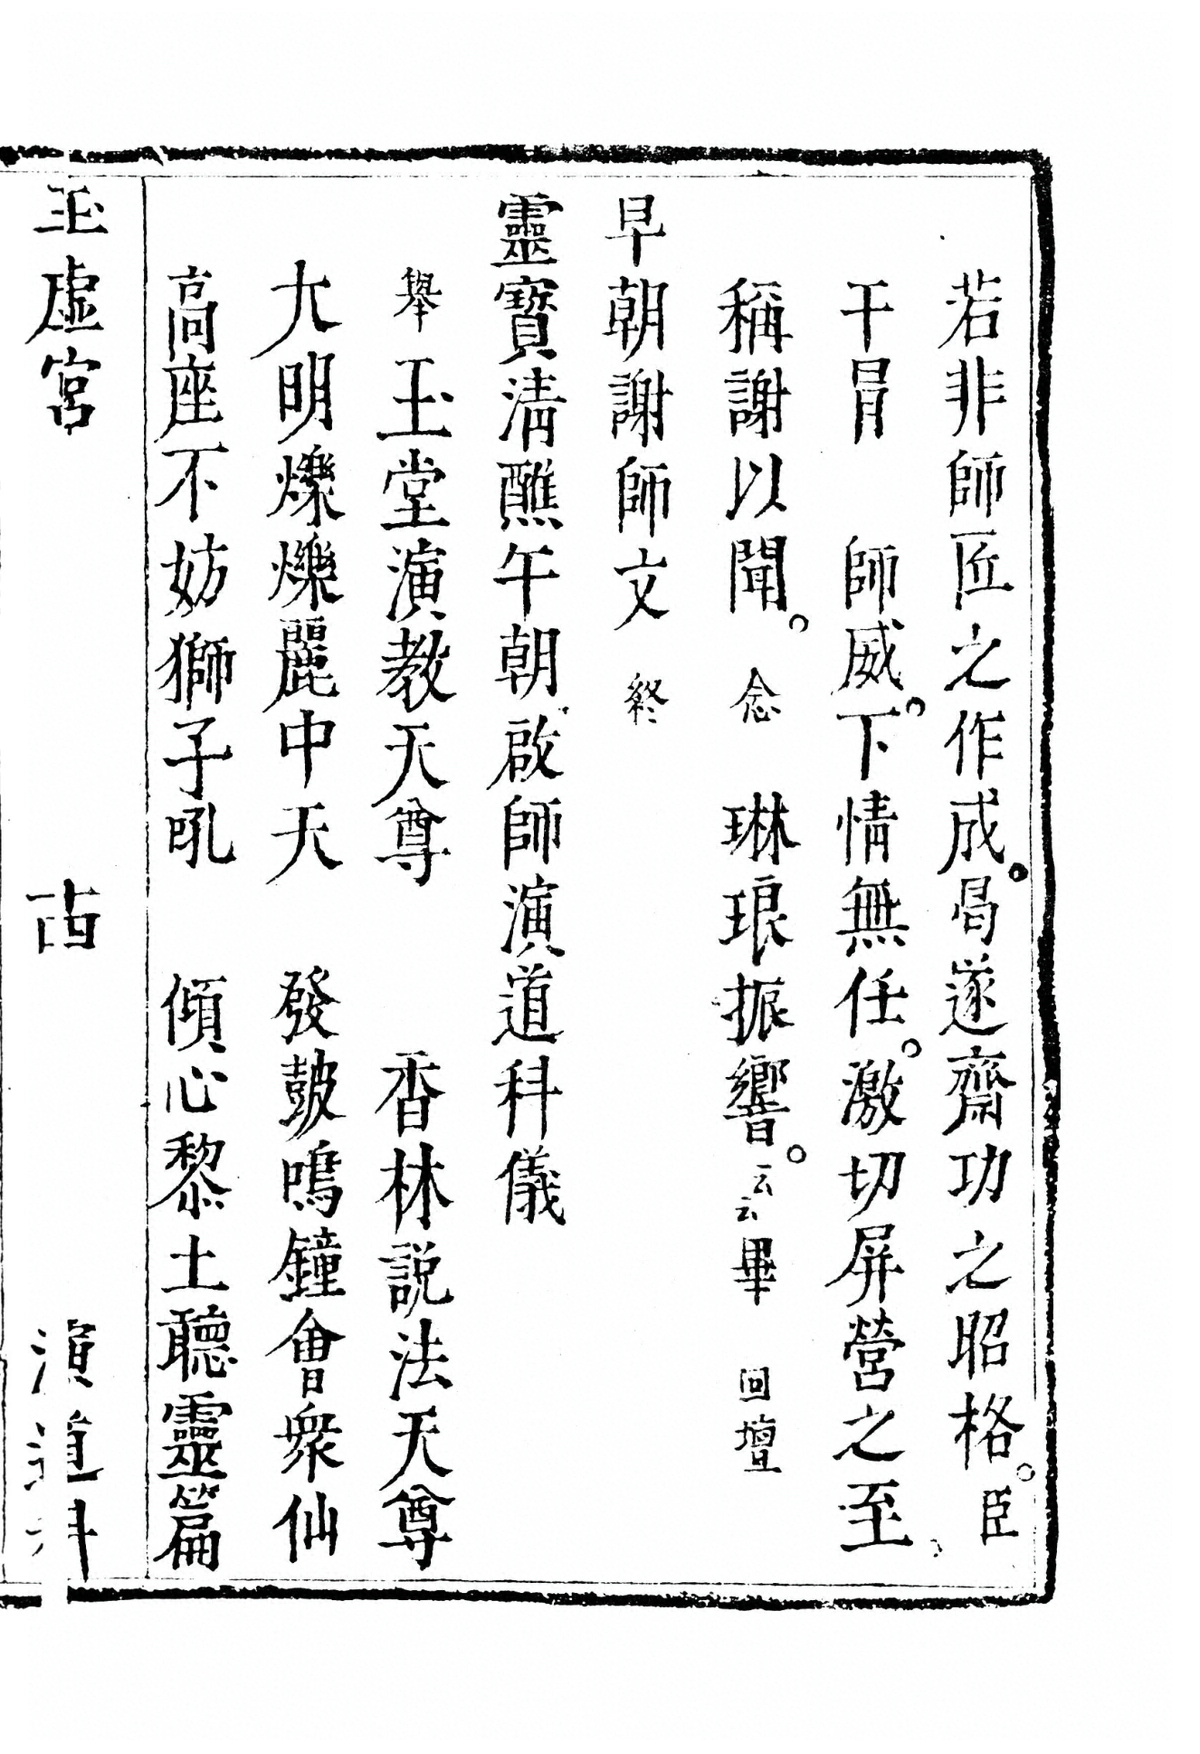 若非師匠之作成。曷遂齋功之昭格。臣
干冒　師威。下情無任。激切屏營之至。
稱謝以聞。念　琳琅振響。云云畢　回壇
早朝謝師文　終
靈寶清醮午朝啟師演道科儀
舉　玉堂演教天尊　香林説法天尊
大明爍爍麗中天　發鼓鳴鐘會衆仙
高座不妨獅子吼　傾心黎土聽靈篇
玉虛宮　　演道科